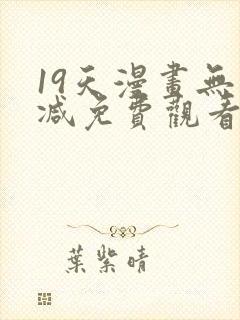 19天漫畫無
減免費觀看
葉紫晴